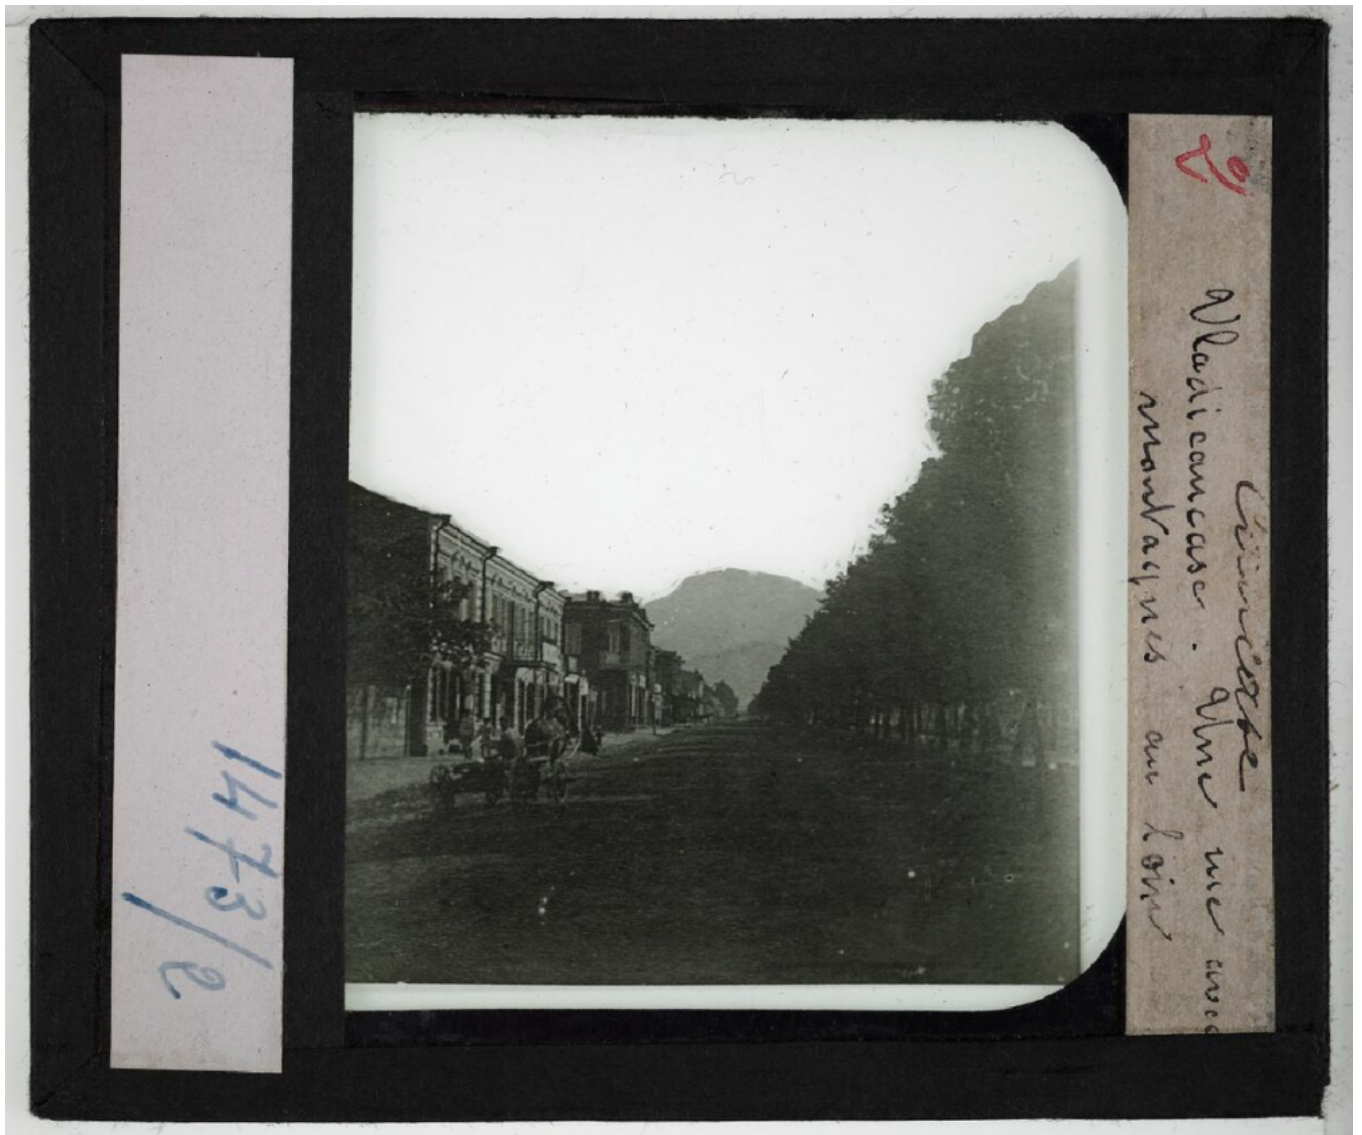 2
Caucase
Vladicaucase. Une rue avec
montagnes au loin
1473/2